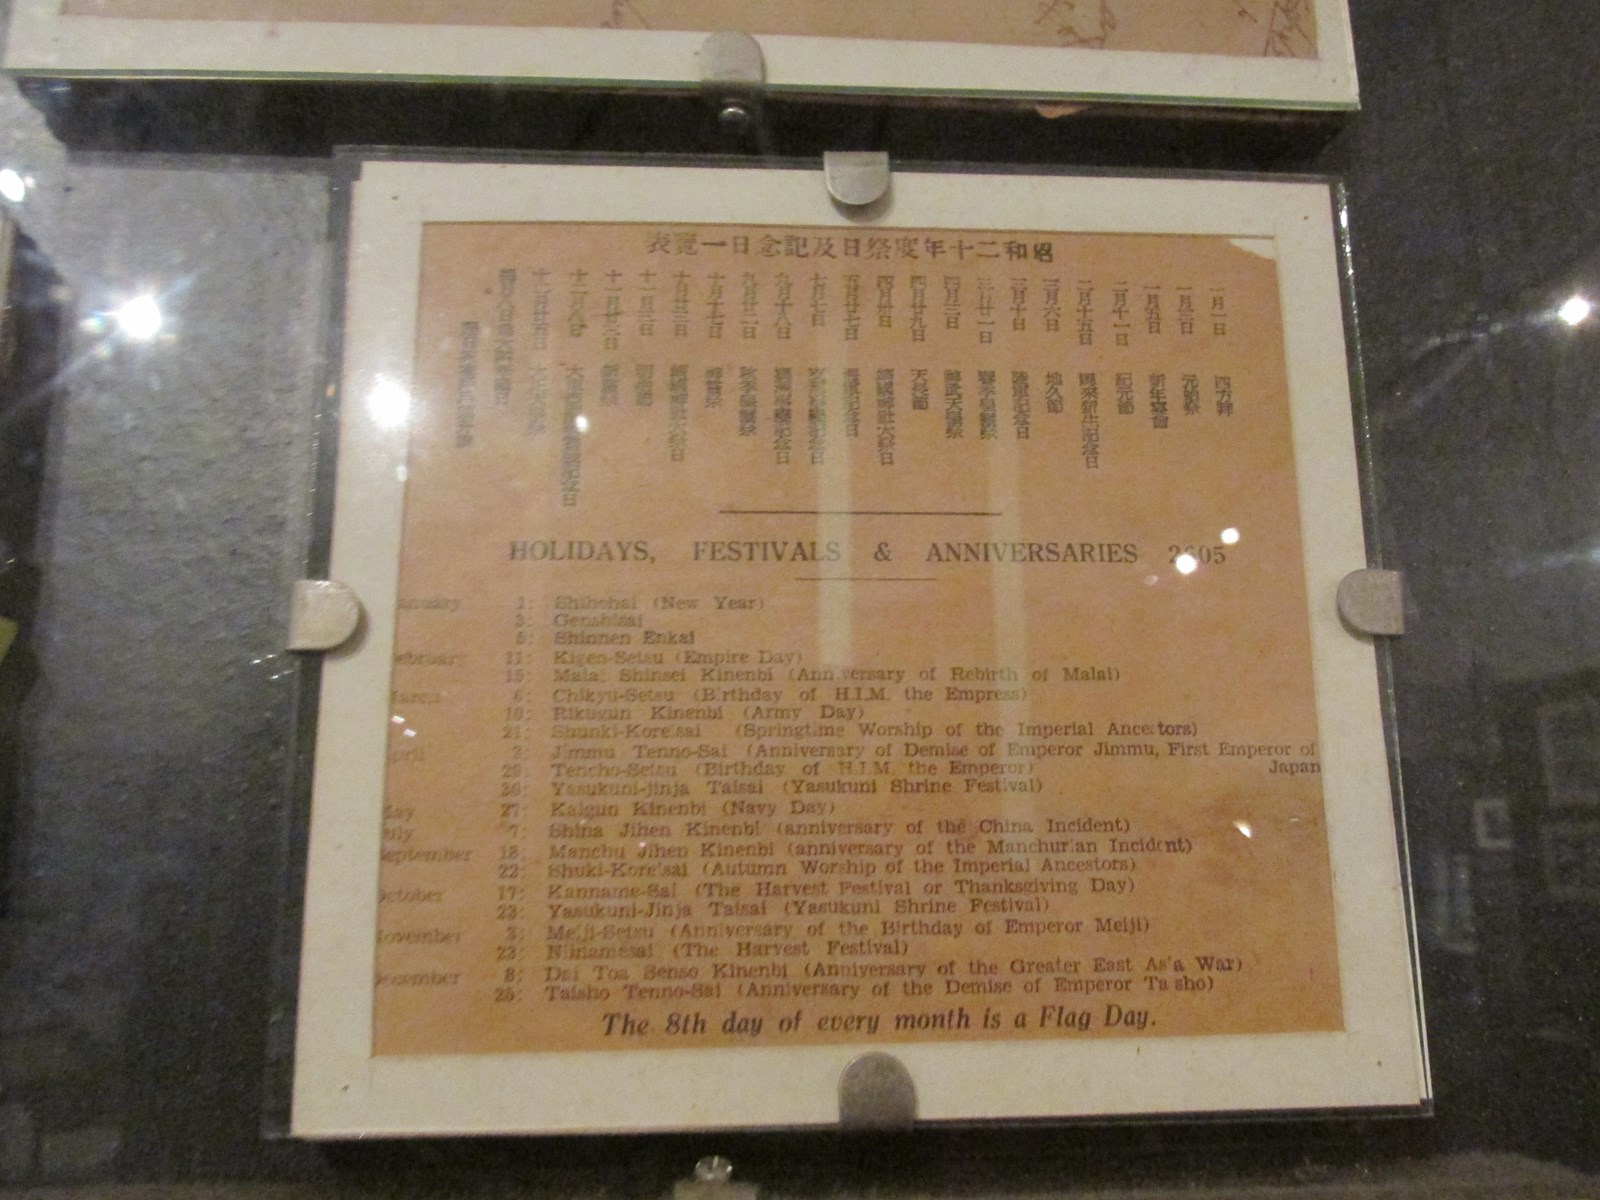 昭和二十年度祭日及記念日一覽表
一月一日 四方拜
一月三日 元始祭
一月五日 新年宴會
二月十一日 紀元節
二月十五日 馬來新生記念日
三月六日 地久節
三月十日 陸軍記念日
三月廿一日 春季皇靈祭
四月三日 神武天皇祭
四月廿九日 天長節
四月卅日 靖國神社大祭日
五月廿七日 海軍記念日
七月七日 支那事變記念日
九月十八日 滿洲事變記念日
九月廿二日 秋季皇靈祭
十月十七日 神嘗祭
十月廿三日 靖國神社大祭日
十一月三日 明治節
十一月廿三日 新嘗祭
十二月八日
十二月廿五日 大正天皇祭
HOLIDAYS, FESTIVALS & ANNIVERSARIES 2605
anuary 1: Shihohai (New Year)
3: Genshisai
5: Shinnen Enkai
ebruary 11: Kigen-Setsu (Empire Day)
15: Malai Shinsei Kinenbi (Anniversary of Rebirth of Malai)
March 6: Chikyu-Setsu (Birthday of H.I.M. the Empress)
10: Rikugun Kinenbi (Army Day)
21: Shunki-Kore'sai (Springtime Worship of the Imperial Ancestors)
pril 3: Jimmu Tenno-Sai (Anniversary of Demise of Emperor Jimmu, First Emperor of
Japan
29: Tencho-Setsu (Birthday of H.I.M. the Emperor)
30: Yasukuni-jinja Taisai (Yasukuni Shrine Festival)
May 27: Kaigun Kinenbi (Navy Day)
uly 7: Shina Jihen Kinenbi (anniversary of the China Incident)
eptember 18: Manchu Jihen Kinenbi (anniversary of the Manchurian Incident)
22: Shuki-Kore'sai (Autumn Worship of the Imperial Ancestors)
October 17: Kanname-Sai (The Harvest Festival or Thanksgiving Day)
23: Yasukuni-Jinja Taisai (Yasukuni Shrine Festival)
November 3: Meiji-Setsu (Anniversary of the Birthday of Emperor Meiji)
23: Niinamesai (The Harvest Festival)
ecember 8: Dai Toa Senso Kinenbi (Anniversary of the Greater East As'a War)
25: Taisho Tenno-Sai (Anniversary of the Demise of Emperor Taisho)
The 8th day of every month is a Flag Day.